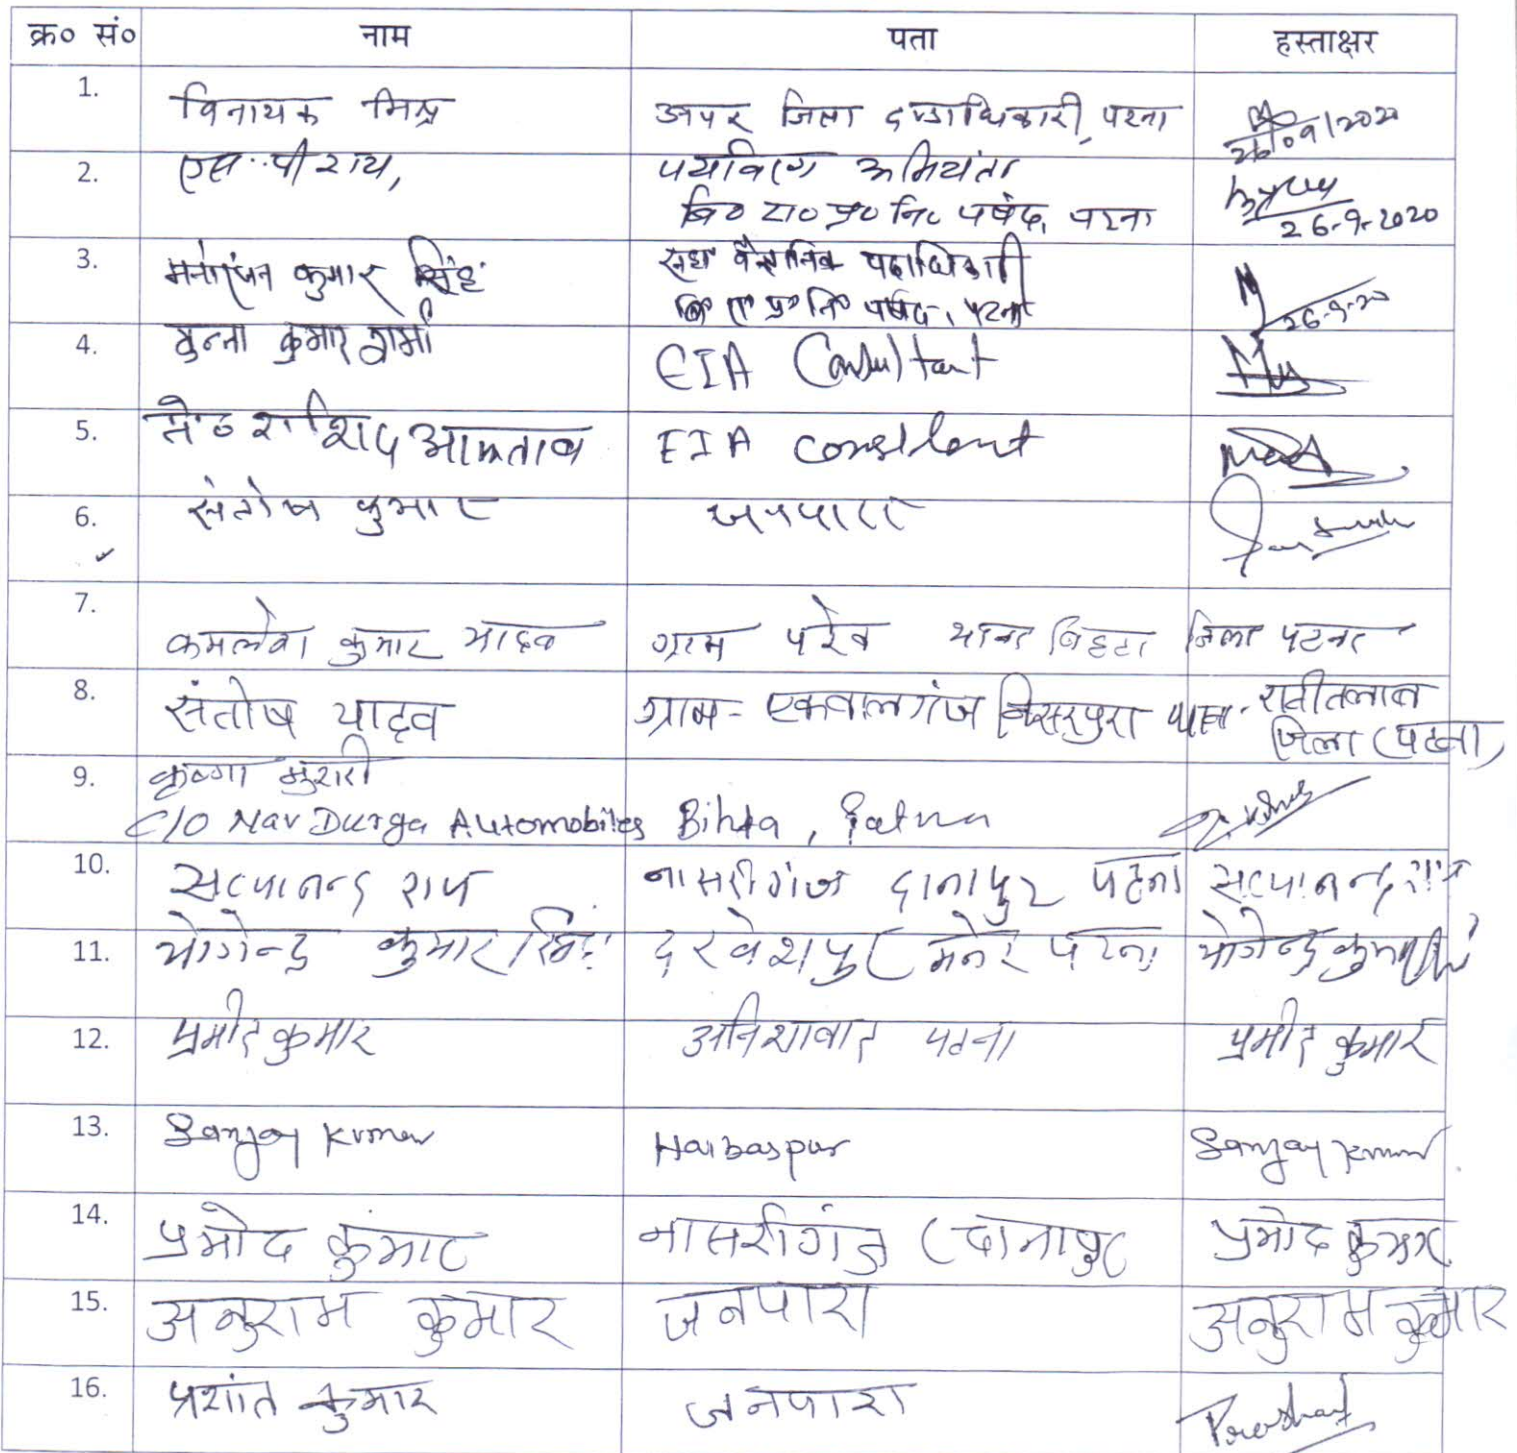 क्र० सं० नाम पता हस्ताक्षर
1. विनायक मिश्र अपर जिला दण्डाधिकारी, पटना 26/09/2020
2. एस. पी राय, अभियंता
बि० रा० प्र० नि० पर्षद, पटना 26-9-2020
3. मनोरंजन कुमार सिंह वैज्ञानिक पदाधिकारी
पर्षद, पटना 26-9-20
4. मुन्ना कुमार शर्मा EIA Consultant
5. मो० राशिद आफताब EIA Consultant
6. संतोष कुमार जनपारा
7. कमलेश कुमार यादव ग्राम परेव थाना बिहटा जिला पटना
8. संतोष यादव ग्राम- एकबालगंज बिसरपुरा थाना- रानीतलाब
जिला (पटना)
9. कृष्णा मुरारी
C/O Nav Durga Automobiles Bihta, Patna
10. सत्यानन्द राय नासरीगंज दानापुर पटना सत्यानन्द राय
11. योगेन्द्र कुमार सिंह दरवेशपुर मनेर पटना योगेन्द्र कुमार
12. प्रमोद कुमार अनिशाबाद पटना प्रमोद कुमार
13. Sanjay Kumar Haibaspur Sanjay Kumar
14. प्रमोद कुमार नासरीगंज (दानापुर प्रमोद कुमार
15. अनुराम कुमार जनपारा अनुराम कुमार
16. प्रशांत कुमार जनपारा Prashant